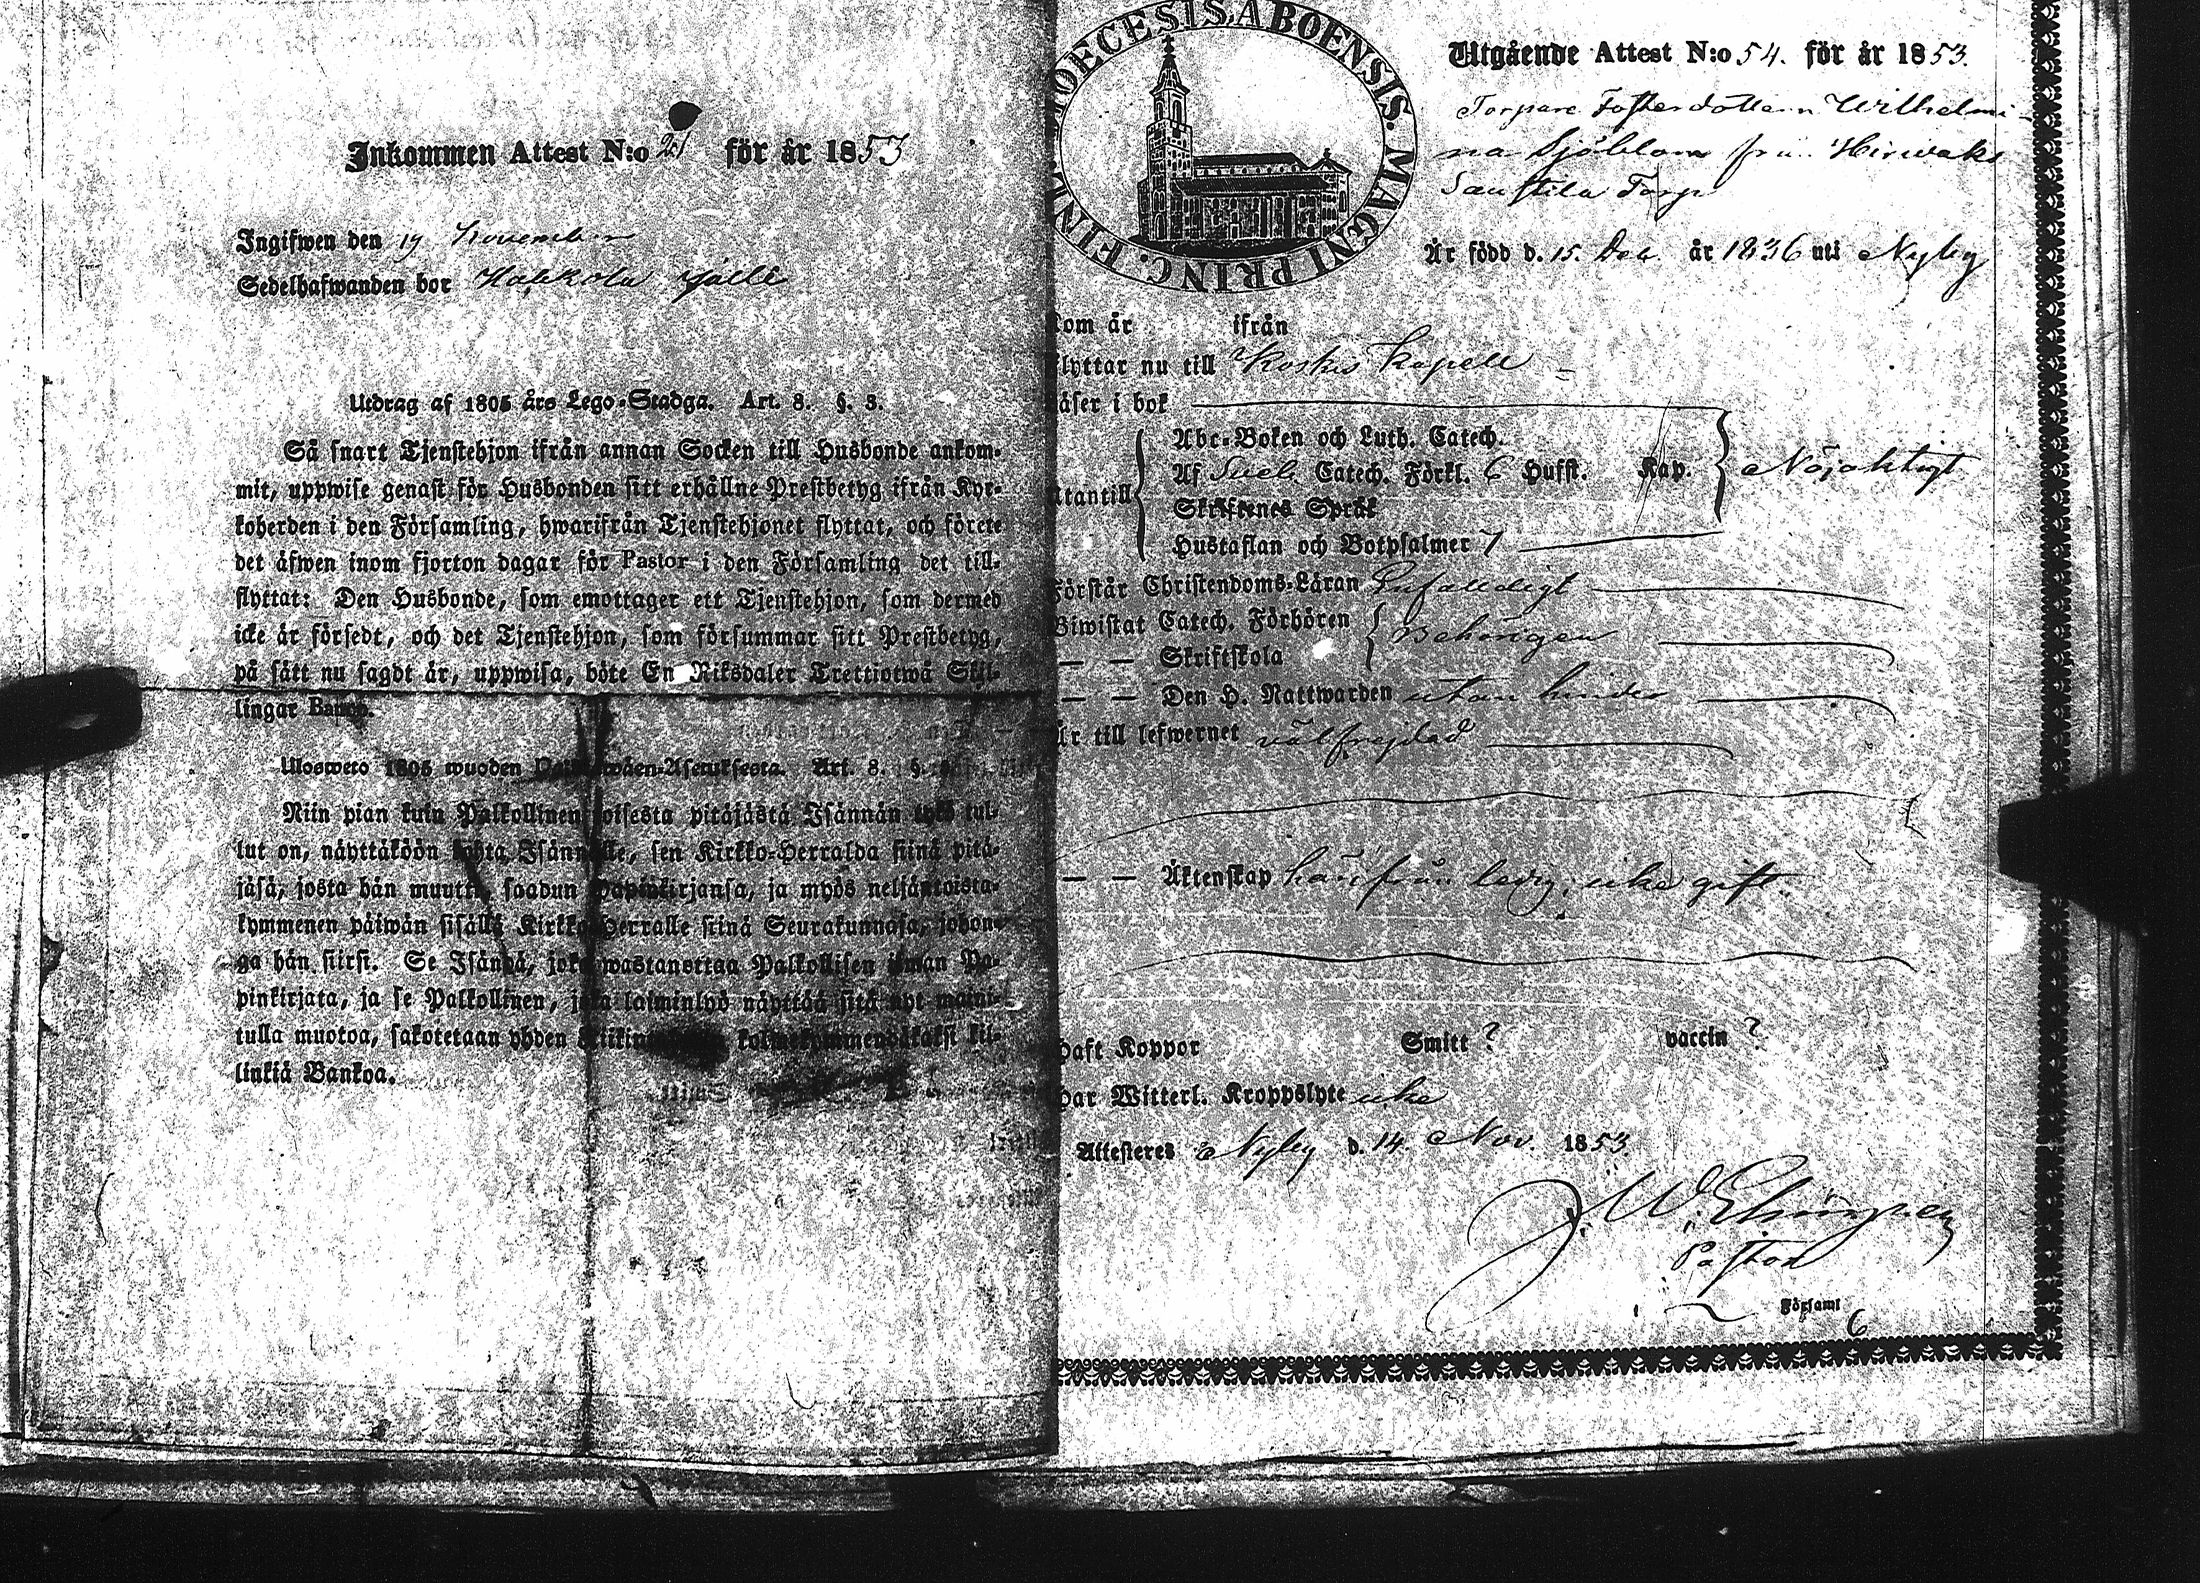 Inkommen Attest N:o 21 för år 1853
Ingifwen den 19 November
Sedelhafwanden bor
Utdrag af 1805 års Lego-Stadga. Art. 8. §. 3.
Så snart Tjenstehjon ifrån annan Socken till Husbonde ankom-
mit, uppwise genast för Husbonden sitt erhållne Prestbetyg ifrån Kyr-
koherden i den Församling, hwarifrån Tjenstehjonet flyttat, och förete
det äfwen inom fjorton dagar för Pastor i den Församling det till-
flyttat: Den Husbonde, som emottager ett Tjenstehjon, som dermed
icke är försedt, och det Tjenstehjon, som försummar sitt Prestbetyg,
på sätt nu sagdt är, uppwisa, böte En Riksdaler Trettiotwå Skil-
lingar Banco.
Ulosweto 1805 wuoden Art. 8. §.
Niin pian kuin Palkollinen toisesta pitäjästä Isännän tykö tul-
lut on, näyttäköön kohta Isännälle, sen Kirkko-Herralda siinä pitä-
jäsä, josta hän muutti, saadun Papinkirjansa, ja myös neljäntoista-
kymmenen päiwän sisällä Kirkko-Herralle siinä Seurakunnasa, johon-
ga hän siirsi. Se Isändä, joka wastanottaa Palkollisen ilman Pa-
pinkirjata, ja se Palkollinen, joka laiminlyö näyttää sitä nyt maini-
tulla muotoa, sakotetaan yhden kolmekymmendäkaksi kil-
linkiä Bankoa.
DIOECESIS ABOENSIS. MAGNI PRINC. FINL.
Utgående Attest N:o 54. för år 1853.
Torpare Fosterdottern Wilhelmi-
na Sjöblom från
Torp
Är född d. 15. Dec. år 1836 uti Nyby
Kom år ifrån
Flyttar nu till Koskis Kapell
Läser i bok
Abc-Boken och Luth. Catech.
Af Sueb. Catech. Förkl. 6 Hufst. Kap. Nöjaktigt
Utantill
Skriftenes Språk
Hustaflan och Botpsalmer 7
Förstår Christendoms-Läran Enfaldeligt
Biwistat Catech. Förhören Behörigen
— — Skriftskola
— — Den H. Nattwarden utan hinder
Är till lefwernet välfrejdad
— — Äktenskap härifrån ledig; icke gift.
Haft Koppor Smitt? vaccin?
Har Witterl. Kroppslyte icke
Attesteres Nyby d. 14. Nov. 1853.
J. W.
Pastor
i Församl